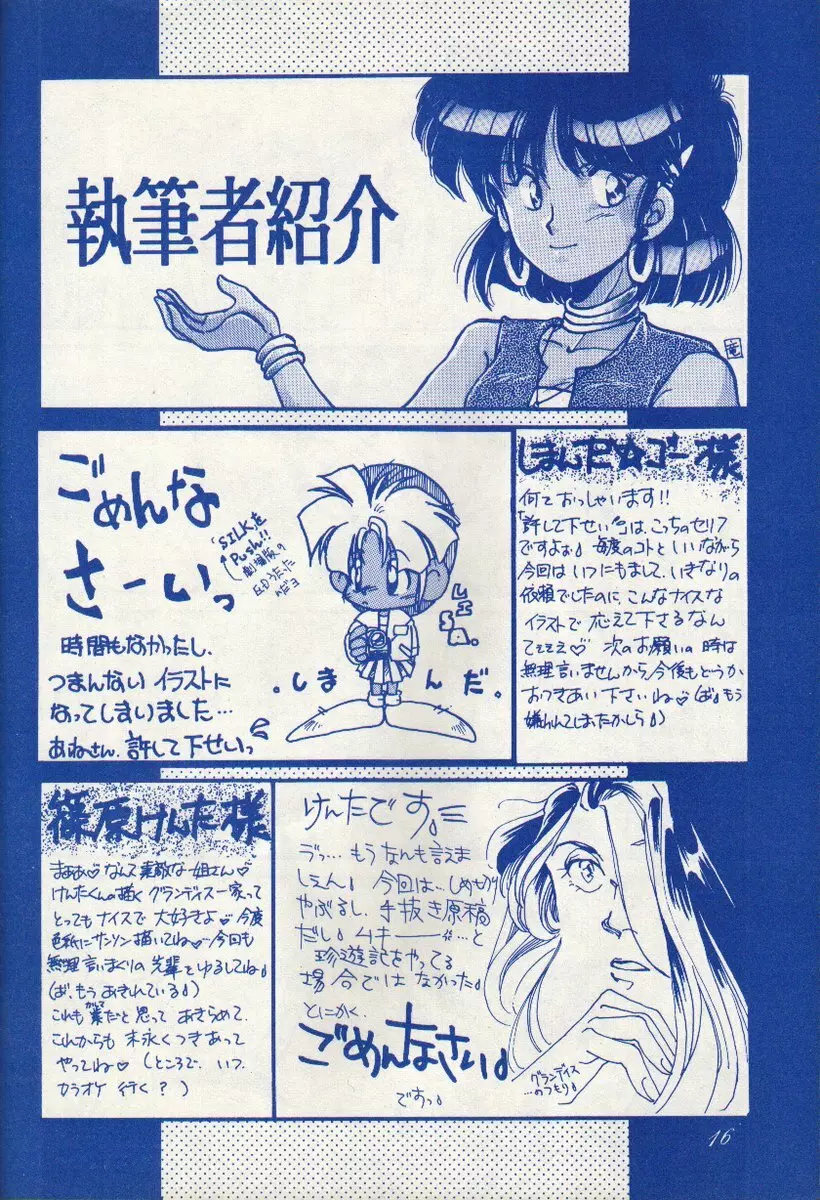 執筆者紹介
竜
ごめんな
さーいっ
「SILKを
Push!!
劇場版の
EDうたた
時間もなかったし、
つまんない イラストに
なってしまいました…
あねさん、許して下せいっ
しまんだ。
しまんだ☆ゴー様
何ておっしゃいます!!
「許して下せいっ」は、こっちのセリフ
ですよぉ♪ 毎度のコトといいながら
今回は いつにもまして、いきなりの
依頼でしたのに こんなナイスな
イラストで 応えて下さるなん
てぇぇぇ♡ 次のお願いの時は
無理言いませんから 今後もどうか
おつきあい下さいね♡(ば♪もう
嫌われてしまったかしら♪)
篠原けんた様
まぁぁ♡なんて素敵な姐さん♡
けんたくんの描く グランディス一家って
とってもナイスで 大好きよ♡ 今度
色紙にサンソン描いてね♡…今回も
無理言いまくりの 先輩をゆるしてね♪
(ば、もう あきれている♪)
これも業だと思って あきらめて、
これからも 末永くつきあって
やってね♡(ところで、いつ
カラオケ 行く?)
けんたです。
ゔっ… もう なんも言えま
しぇん♪ 今回は…しめきり
やぶるし、手抜き原稿
だし♪ ムキーー…と
珍遊記をやってる
場合ではなかった♪
とにかく、
ごめんなさい♪
ですっ。
グランディス
…のつもり♪
16